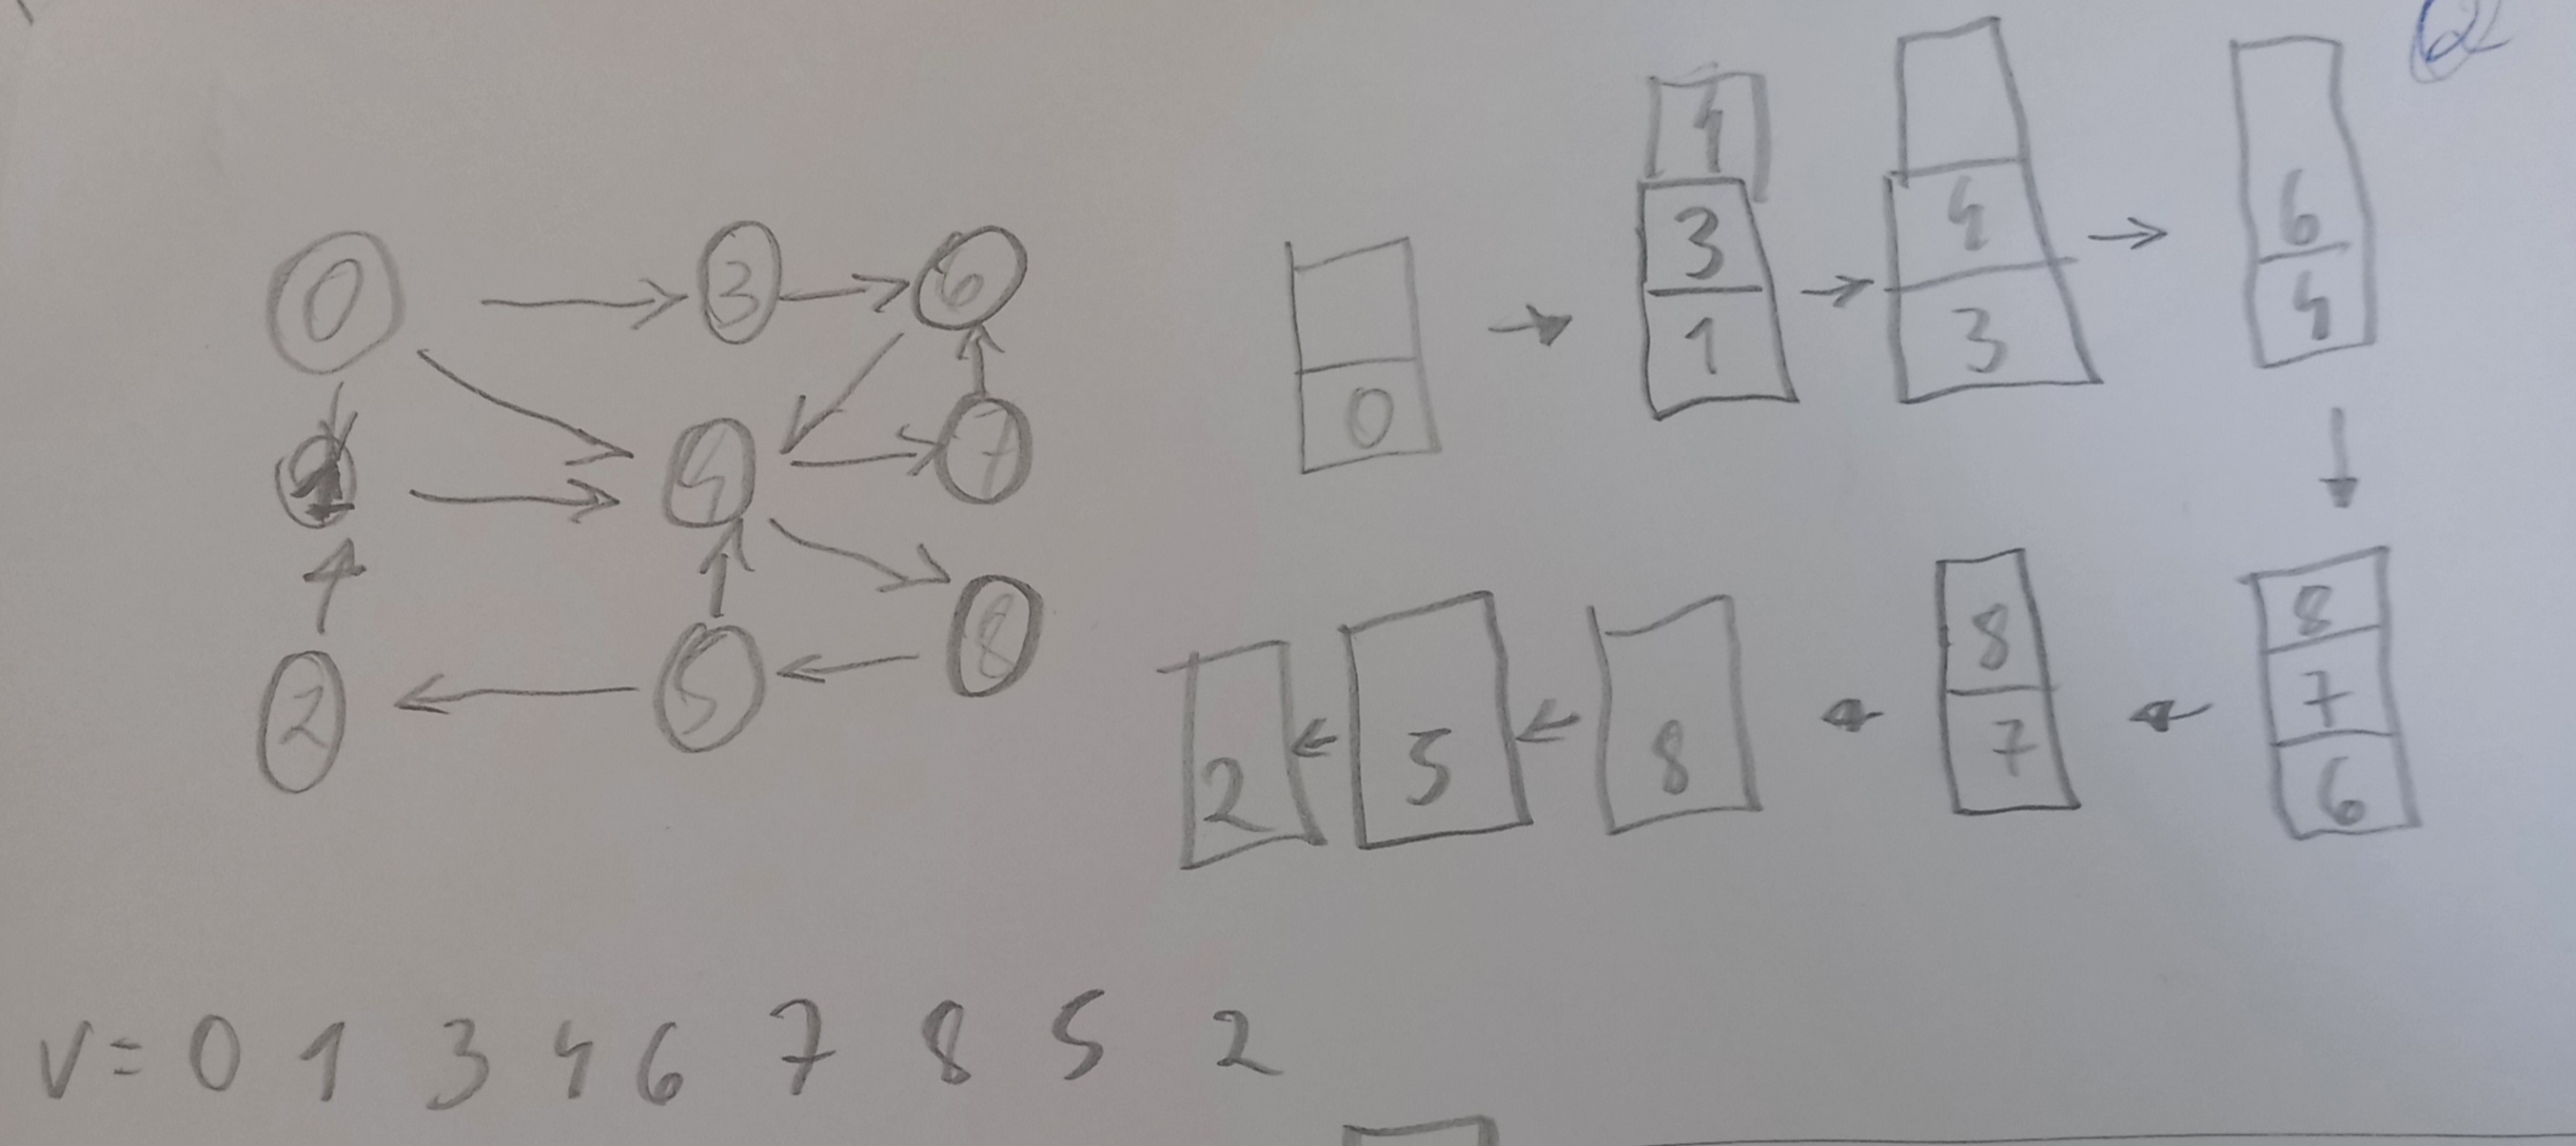 0 3 6
1 4 7
2 5 8
0
4
3
1
4
3
6
4
8
7
6
8
7
8
5
2
V = 0 1 3 4 6 7 8 5 2